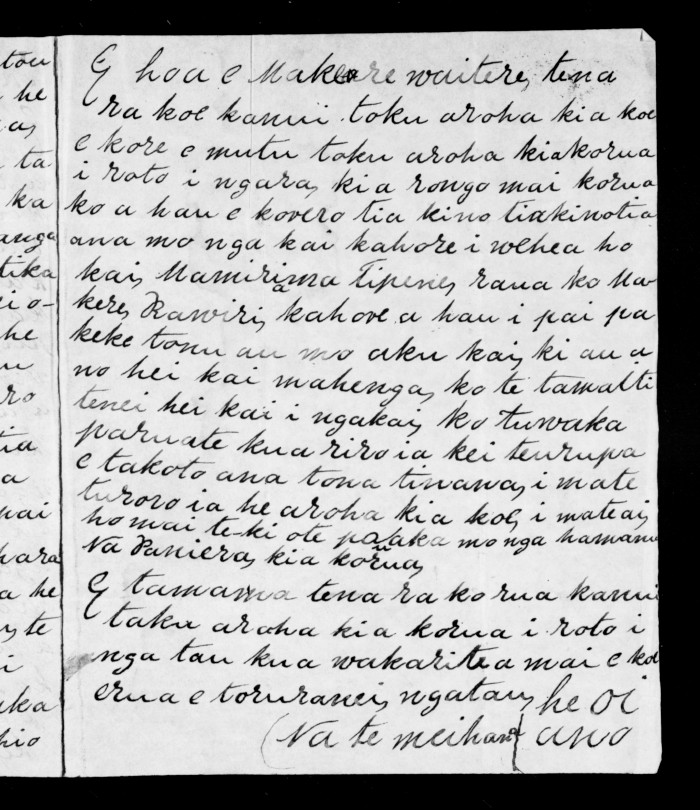 tou
he
as
ta
ka
anga
tika
he
ro
tia
a
pai
hara
a he
te
i
uka
hio
E hoa e Makere waitere, tena
ra koe kanui toku aroha kia koe
e kore e mutu toku aroha kiakorua
i roto i ngara, kia rongo mai korua
ko a hau e kovero tia kino tiakinotia
ana mo nga kai kahore i wehea ho
kai, Mamirima Tipene, raua ko Ma
kere, Rawiri, kahore a hau i pai pa
keke tonu au mo aku kai, ki au a
no hei kai mahenga, ko te tamaiti
tenei hei kai i ngakai, ko Tuwaka
paruate kua riro ia kei teurupa
e takoto ana tona tinana, i mate
turoro ia he aroha kia koe, i mateai,
ho mai te-ki ote paaka mo nga hamanu
Na Paniera, kia korua,
E tamama tena ra ko rua kanui
taku aroha kia korua i roto i
nga tau kua wakarite a mai e koe
erua e toruranei, ngatau, he oi
(Na te meihana ano